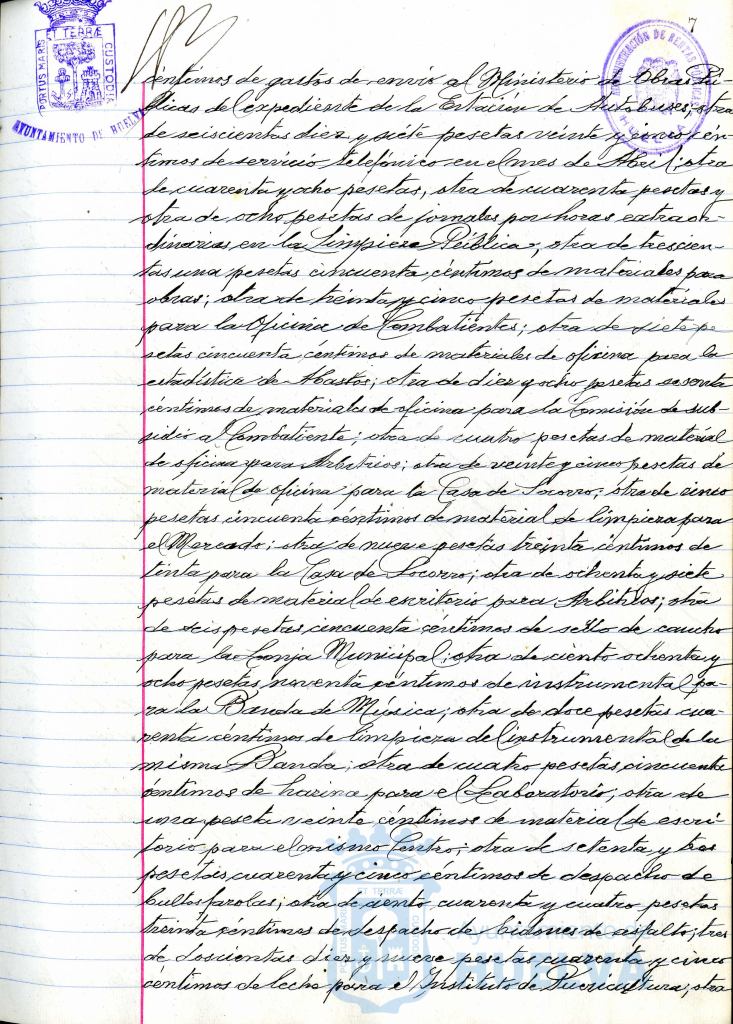 7
PORTUS MARIS ET TERRÆ CUSTODIA
AYUNTAMIENTO DE HUELVA
ADMINISTRACIÓN DE RENTAS
HUELVA
céntimos de gastos de envío al Ministerio de Obras Pú-
blicas del expediente de la Estación de Autobuses; otra
de seiscientas diez y siete pesetas veinte y cinco cén-
timos de servicio telefónico en el mes de Abril; otra
de cuarenta y ocho pesetas, otra de cuarenta pesetas y
otra de ocho pesetas de jornales por horas extraor-
dinarias en la Limpieza Pública; otra de trescien-
tas una pesetas cincuenta céntimos de materiales para
obras; otra de treinta y cinco pesetas de materiales
para la Oficina de Combatientes; otra de siete pe
setas cincuenta céntimos de materiales de oficina para la
estadística de Abastos; otra de diez y ocho pesetas sesenta
céntimos de materiales de oficina para la Comisión de sub-
sidio al Combatiente; otra de cuatro pesetas de material
de oficina para Arbitrios; otra de veinte y cinco pesetas de
material de oficina para la Casa de Socorro; otra de cinco
pesetas cincuenta céntimos de material de limpieza para
el Mercado; otra de nueve pesetas treinta céntimos de
tinta para la Casa de Socorro; otra de ochenta y siete
pesetas de material de escritorio para Arbitrios; otra
de seis pesetas cincuenta céntimos de sello de caucho
para la Lonja Municipal; otra de ciento ochenta y
ocho pesetas noventa céntimos de instrumental pa-
ra la Banda de Música; otra de doce pesetas cua-
renta céntimos de limpieza del instrumental de la
misma Banda; otra de cuatro pesetas cincuenta
céntimos de harina para el Laboratorio; otra de
una peseta veinte céntimos de material de escri-
torio para el mismo Centro; otra de setenta y tres
pesetas cuarenta y cinco céntimos de despacho de
bultos farolas; otra de ciento cuarenta y cuatro pesetas
treinta céntimos de despacho de bidones de asfalto; tres
de doscientas diez y nueve pesetas cuarenta y cinco
céntimos de leche para el Instituto de Puericultura; otra
PORTUS MARIS ET TERRÆ CUSTODIA
Ayuntamiento
HUELVA